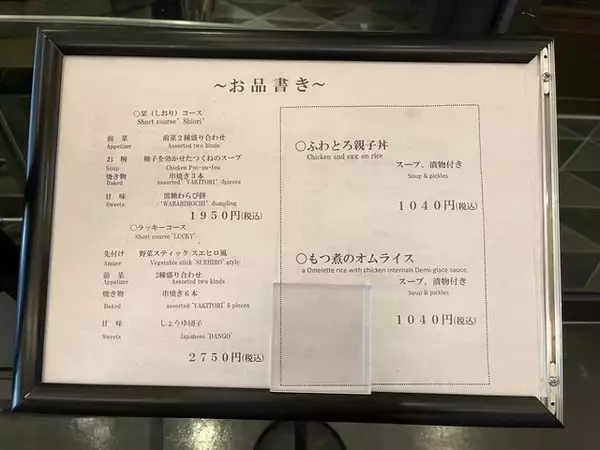 ～お品書き～
○栞（しおり）コース
Short course"Shiori"
前 菜 前菜２種盛り合わせ
Appetizer Assorted two kinds
お 椀 柚子を効かせたつくねのスープ
Soup Chicken Pot-au-feu
焼き物 串焼き３本
Baked assorted"YAKITORI" 3pieces
甘 味 黒糖わらび餅
Sweets "WARABIMOCHI" dumpling
１９５０円(税込)
○ラッキーコース
Short course"LUCKY"
先付け 野菜スティック スエヒロ風
Amuse Vegetable stick"SUEHIRO"style
前 菜 2種盛り合わせ
Appetizer Assorted two kinds
焼き物 串焼き６本
Baked assorted"YAKITORI"6 pieces
甘 味 しょうゆ団子
Sweets Japanese"DANGO"
２７５０円(税込)
○ふわとろ親子丼
Chicken and egg on rice
スープ、漬物付き
Soup & pickles
１０４０円(税込)
○もつ煮のオムライス
a Omelette rice with chicken internals Demi-glace sauce,
スープ、漬物付き
Soup & pickles
１０４０円(税込)